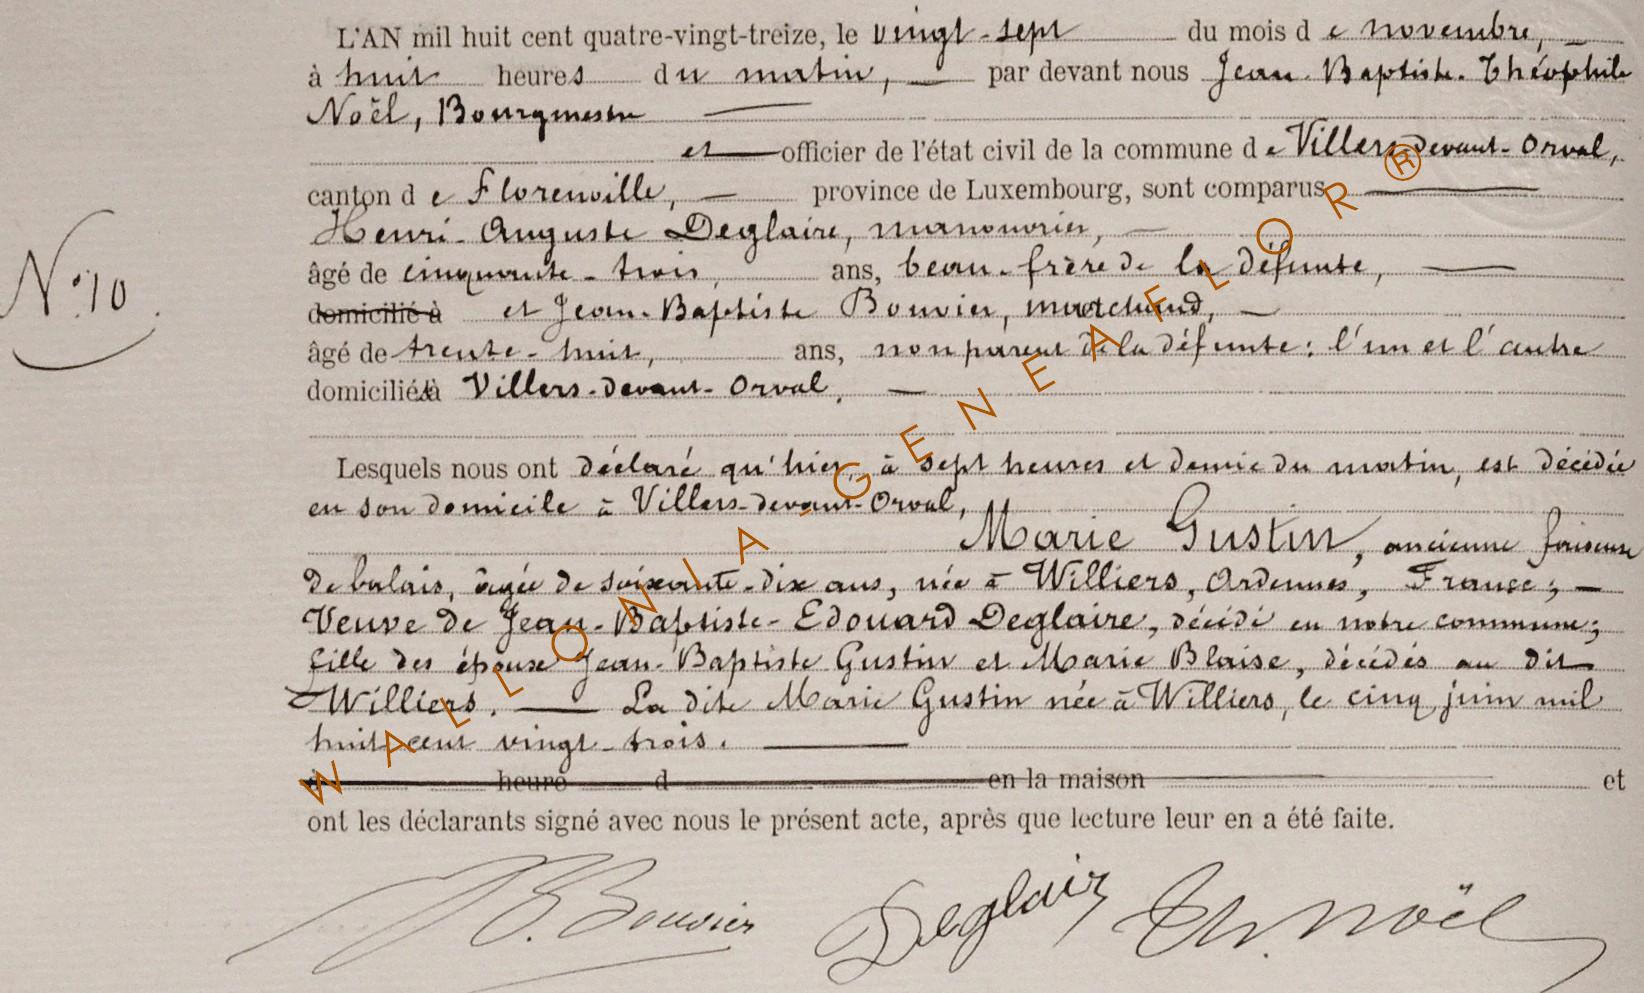 L'AN mil huit cent quatre-vingt-treize, le vingt-sept du mois de novembre,
à huit heures du matin, par devant nous Jean-Baptiste-Théophile
Noël, Bourgmestre
et officier de l'état civil de la commune de Villers-devant-Orval,
canton de Florenville, province de Luxembourg, sont comparus
Henri-Auguste Deglaire, manouvrier,
âgé de cinquante-trois, ans, beau-frère de la défunte,
N° 10.
domicilié à et Jean-Baptiste Bouvier, marchand,
âgé de trente-huit, ans, non parent de la défunte: l'un et l'autre
domiciliés à Villers-devant-Orval,
Lesquels nous ont déclaré qu'hier, à sept heures et demie du matin, est décédée
en son domicile à Villers-devant-Orval,
Marie Gustin, ancienne faiseuse
de balais, âgée de soixante-dix ans, née à Williers, Ardennes, France;
Veuve de Jean-Baptiste-Edouard Deglaire, décédé en notre commune;
fille des époux Jean-Baptiste Gustin et Marie Blaise, décédés au dit
Williers. La dite Marie Gustin née à Williers, le cinq juin mil
huit cent vingt-trois.
à heure d en la maison et
ont les déclarants signé avec nous le présent acte, après que lecture leur en a été faite.
JB. Bouvier Deglair Th. Noël
WALLONIA-GENEAFLOR®